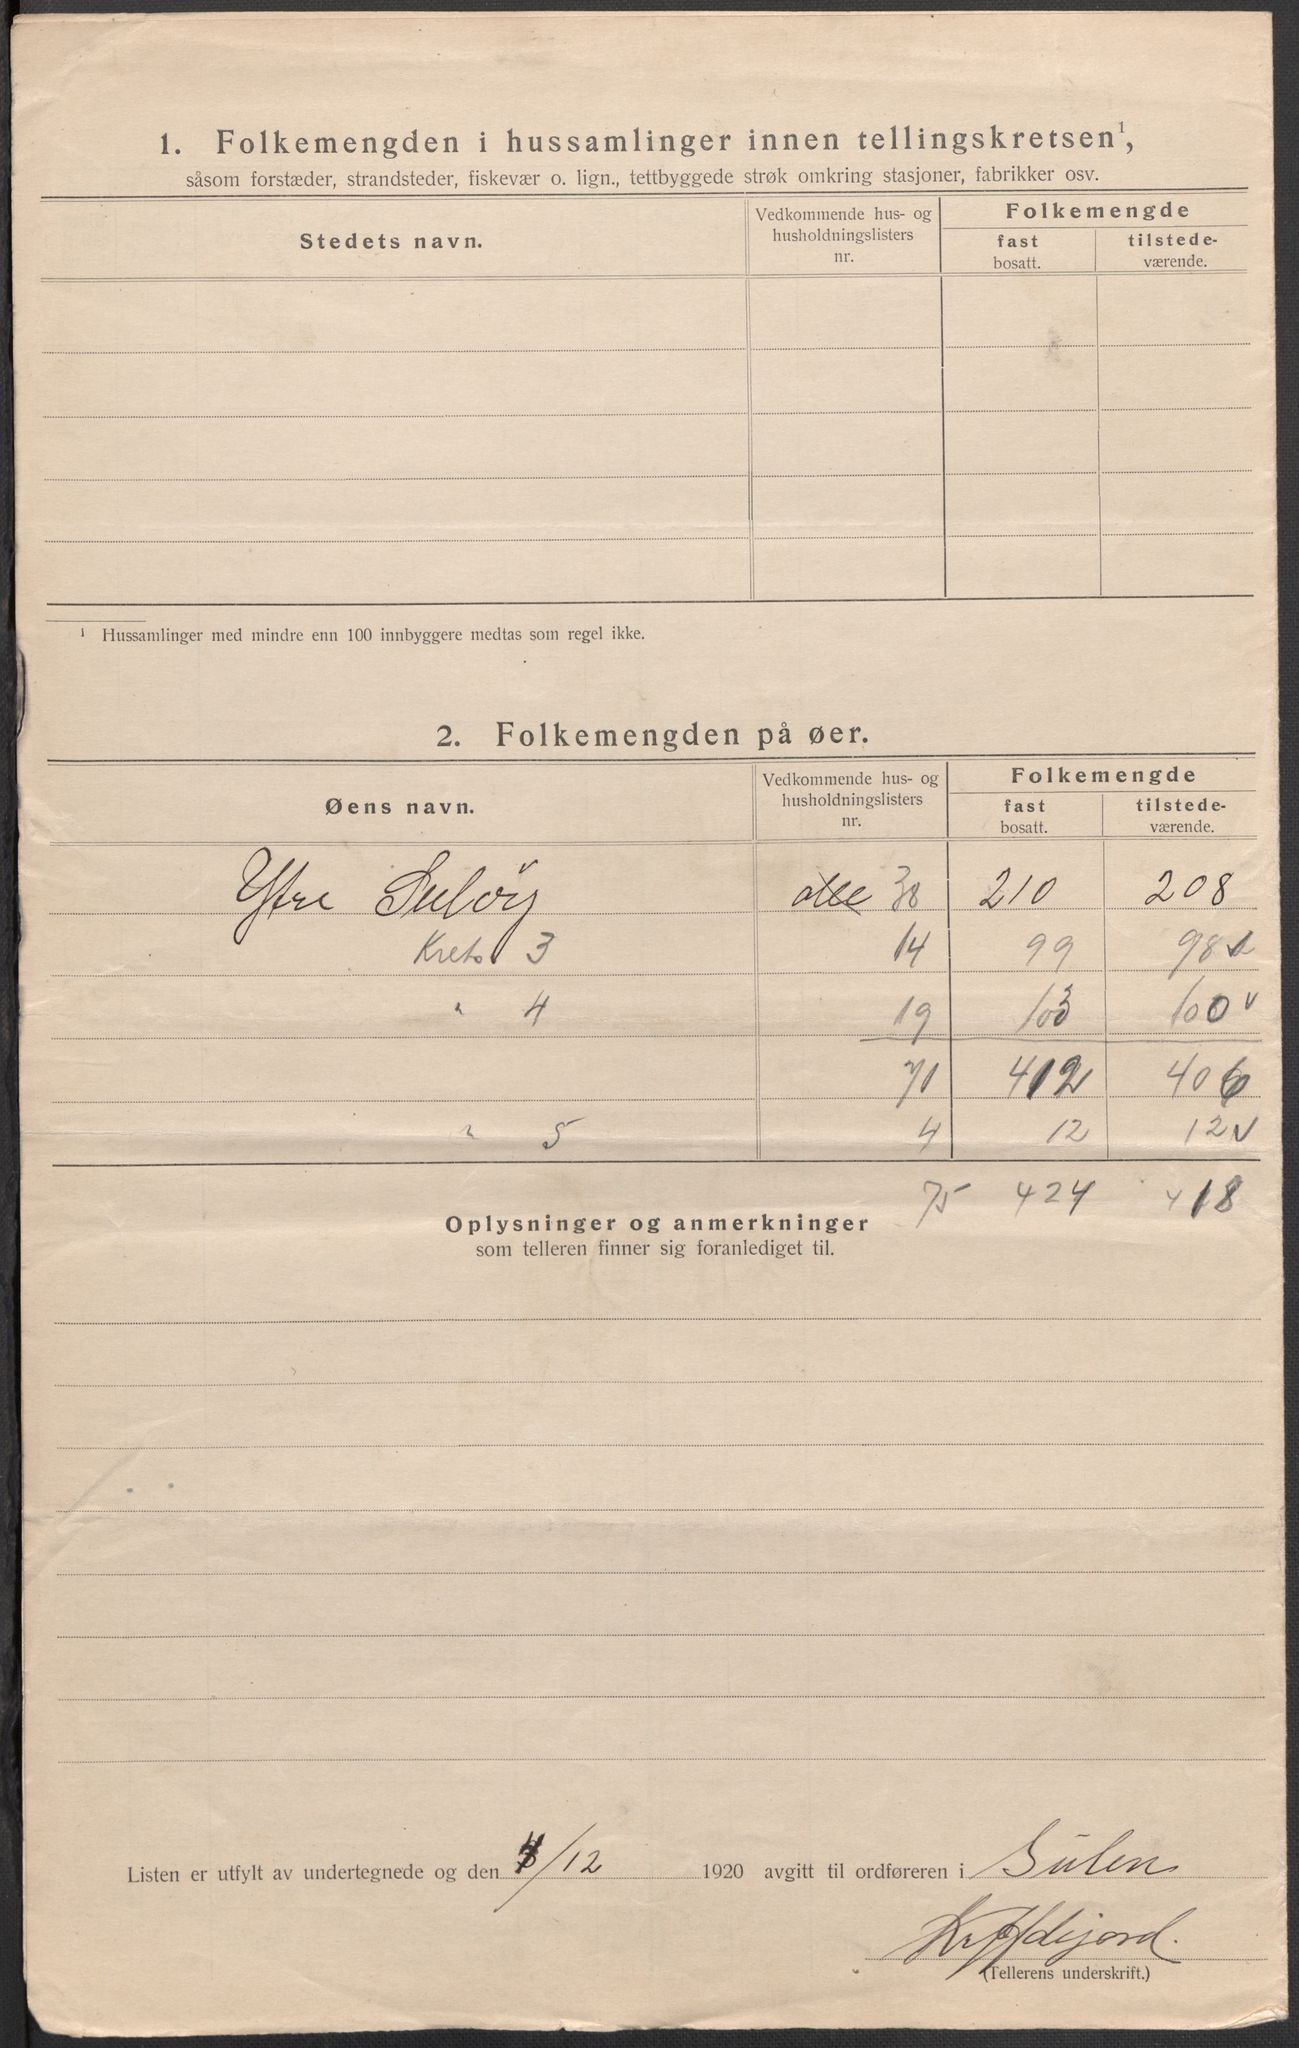 1. Folkemengden i hussamlinger innen tellingskretsen¹,
såsom forstæder, strandsteder, fiskevær o. lign., tettbyggede strøk omkring stasjoner, fabrikker osv.
Stedets navn.
Vedkommende hus- og husholdningslisters nr.
Folkemengde
fast bosatt.
tilstede-værende.
¹ Hussamlinger med mindre enn 100 innbyggere medtas som regel ikke.
2. Folkemengden på øer.
Øens navn.
Vedkommende hus- og husholdningslisters nr.
Folkemengde
fast bosatt.
tilstede-værende.
Ytre Sulöy alle 38 210 208
Krets 3 14 99 98
" 4 19 103 100 v
71 412 406
" 5 4 12 12 v
75 424 418
Oplysninger og anmerkninger
som telleren finner sig foranlediget til.
Listen er utfylt av undertegnede og den /12 1920 avgitt til ordføreren i Sulen
(Tellerens underskrift.)